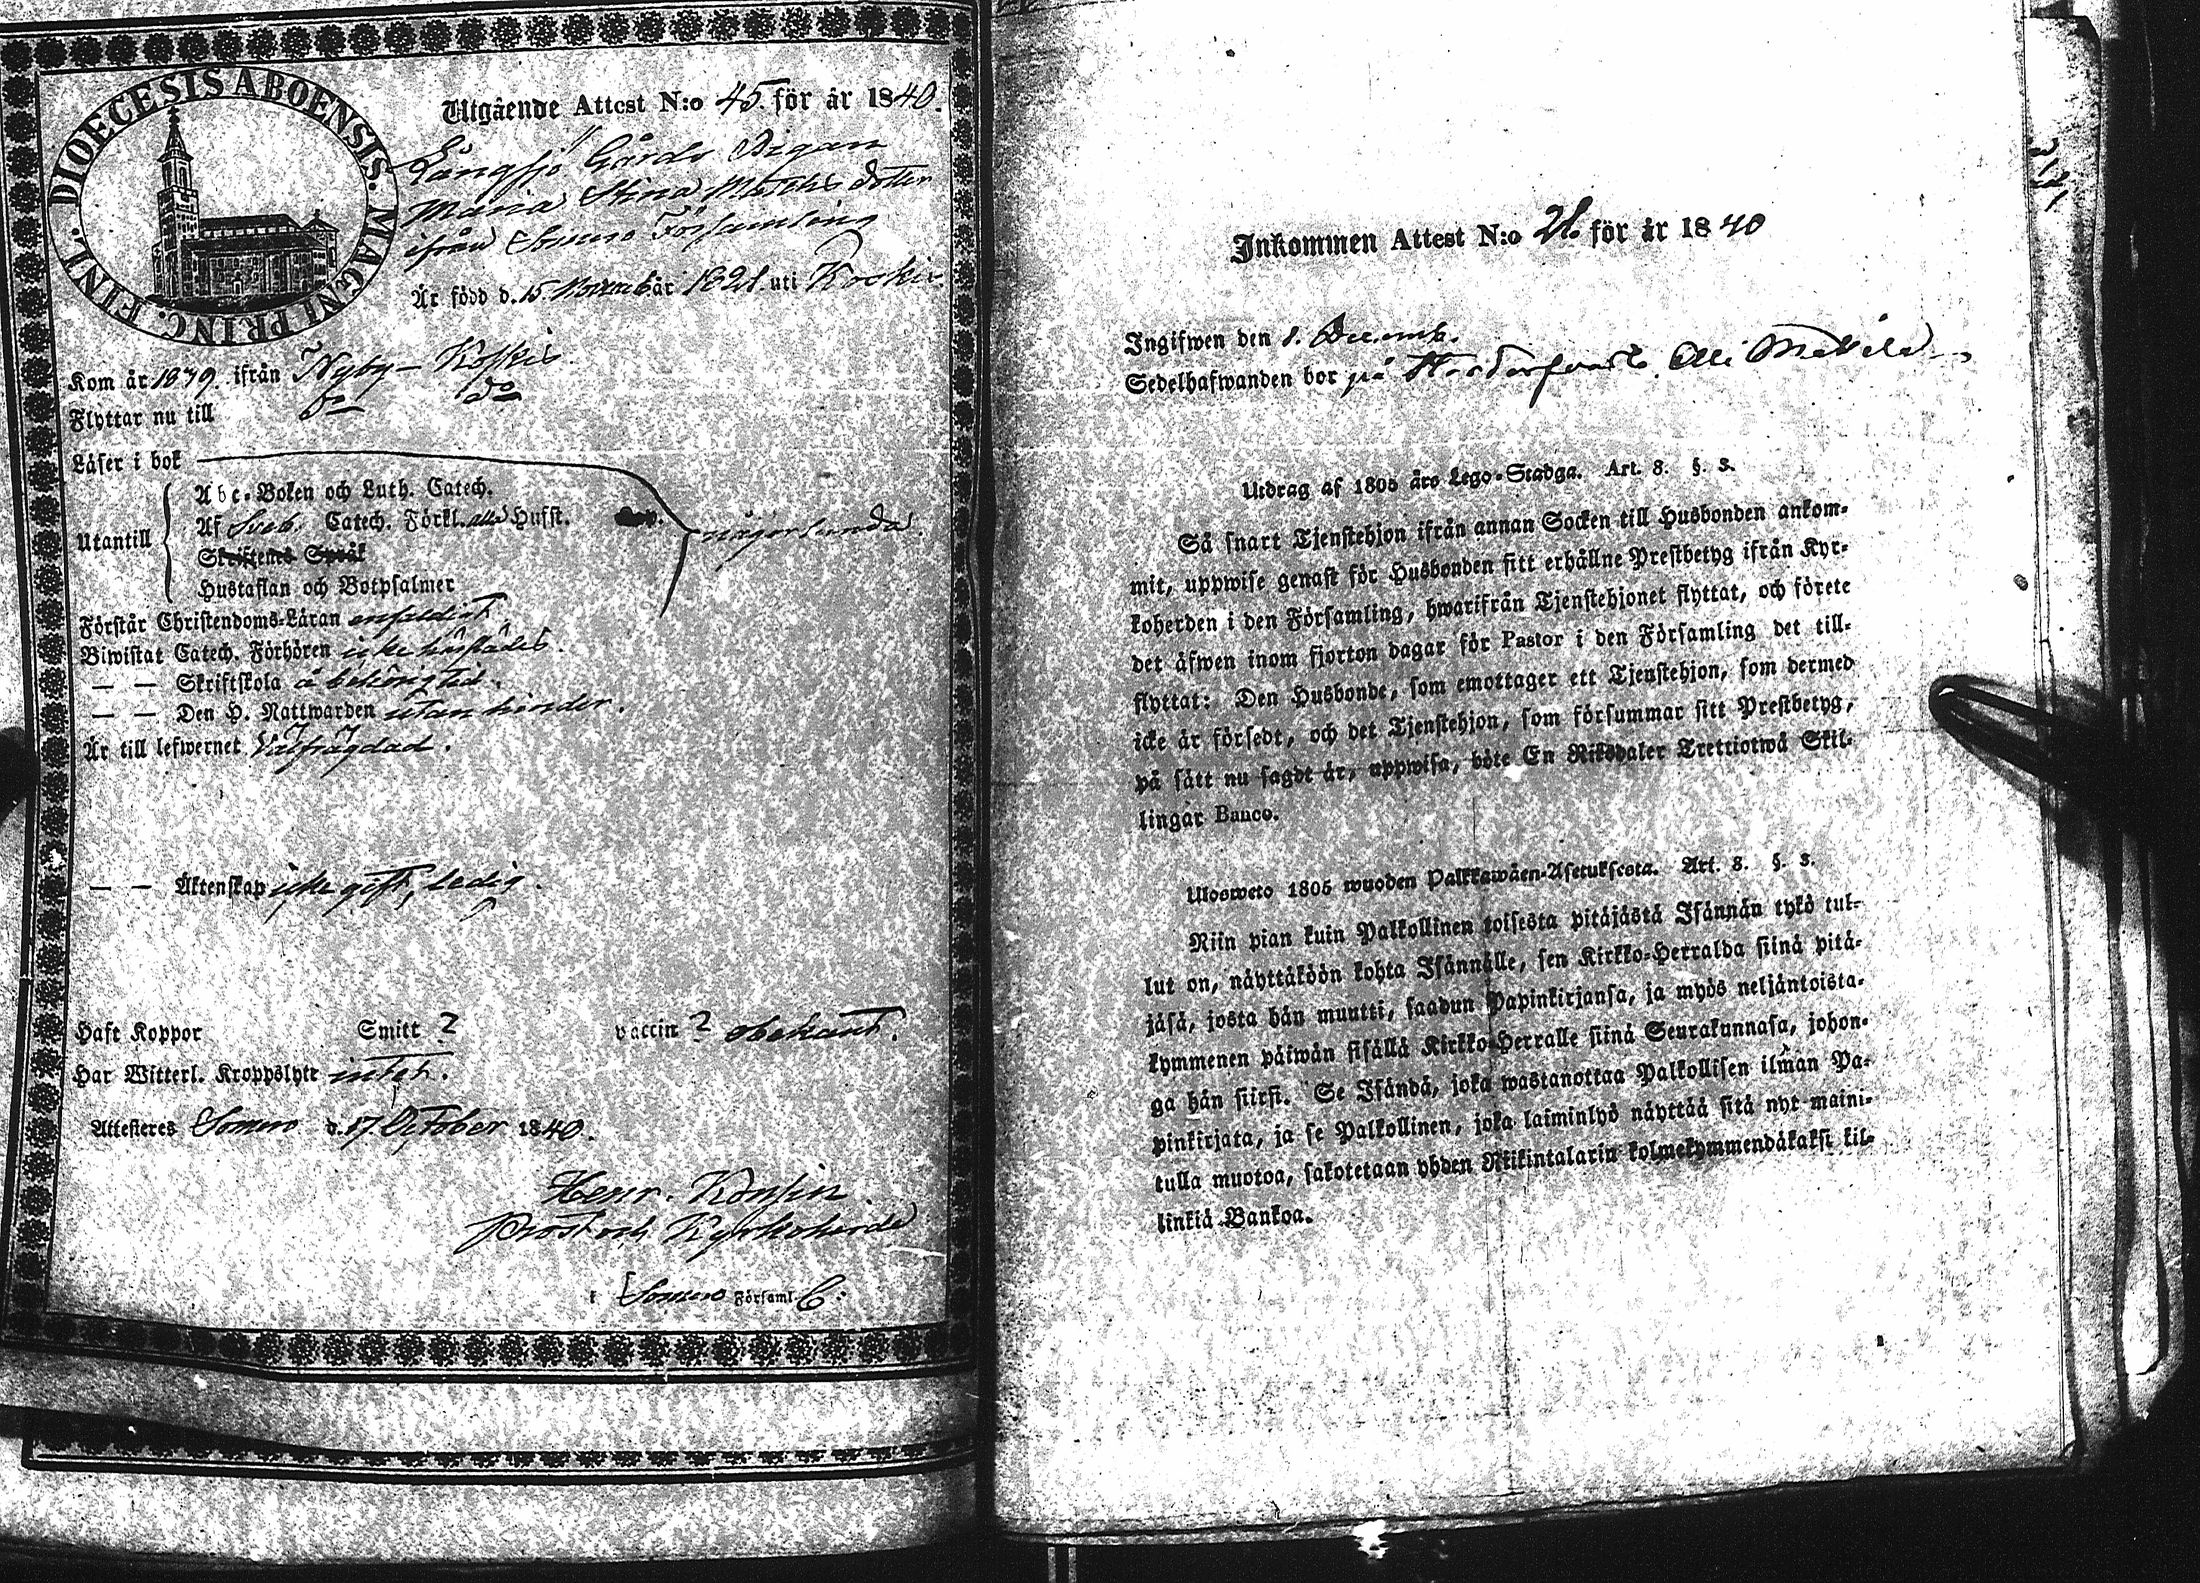 DIOECESIS ABOENSIS. MAGNI PRINC. FINL.
Utgående Attest N:o 45. för år 1840.
Långsjö Gårds Pigan
Maria Stina Matths dotter
ifrån Somero Församling
Är född d. 15 Novemb år 1821. uti Koskis
Kom år 1839. ifrån Nyby - Koskis.
Flyttar nu till Do Do
Läser i bok
Utantill
Abc-Boken och Luth. Catech.
Af Sveb. Catech. Förkl. alla Hufst.
Skriftens Språk
någorlunda.
Hustaflan och Botpsalmer
Förstår Christendoms-Läran enfaldigt
Biwistat Catech. Förhören icke
— — Skriftskola å behörig tid.
— — Den H. Nattwarden utan hinder.
Är till lefwernet Välfrägdad.
— — Äktenskap icke gift, ledig.
Haft Koppor Smitt ? vaccin ? obekant.
Har Witterl. Kroppslyte intet.
Attesteres Somero d. 17 October 1840.
Henr.
Prost och Kyrkoherde
i Somero Församl.
Inkommen Attest N:o 21. för år 1840
Ingifwen den 1. Decemb.
Sedelhafwanden bor på
Utdrag af 1805 års Lego-Stadga. Art. 8. §. 3.
Så snart Tjenstehjon ifrån annan Socken till Husbonden ankom-
mit, uppwise genast för Husbonden sitt erhållne Prestbetyg ifrån Kyr-
koherden i den Församling, hwarifrån Tjenstehjonet flyttat, och förete
det äfwen inom fjorton dagar för Pastor i den Församling det till-
flyttat: Den Husbonde, som emottager ett Tjenstehjon, som dermed
icke är försedt, och det Tjenstehjon, som försummar sitt Prestbetyg,
på sätt nu sagdt är, uppwisa, böte En Riksdaler Trettiotwå Skil-
lingar Banco.
Ulosweto 1805 wuoden Palkkawäen-Asetuksesta. Art. 8. §. 3.
Niin pian kuin Palkollinen toisesta pitäjästä Isännän tykö tul-
lut on, näyttäköön kohta Isännälle, sen Kirkko-Herralda siinä pitä-
jäsä, josta hän muutti, saadun Papinkirjansa, ja myös neljäntoista-
kymmenen päiwän sisällä Kirkko-Herralle siinä Seurakunnasa, johon-
ga hän siirsi. Se Isändä, joka wastanottaa Palkollisen ilman Pa-
pinkirjata, ja se Palkollinen, joka laiminlyö näyttää sitä nyt maini-
tulla muotoa, sakotetaan yhden Riikintalarin kolmekymmendäkaksi kil-
linkiä Bankoa.